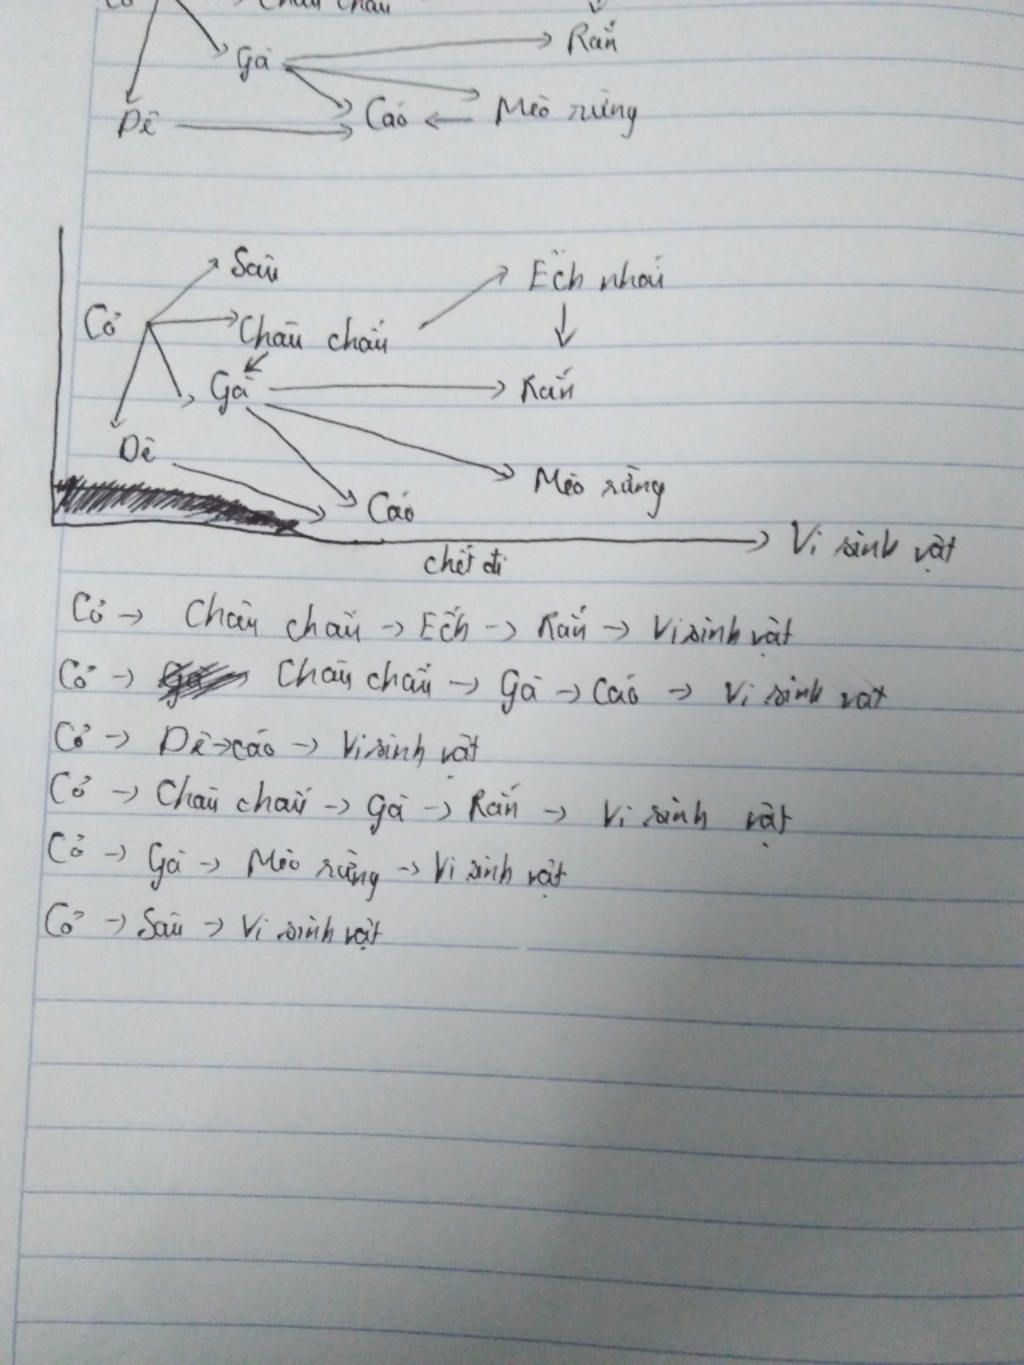 Châu chấu
Gà → Rắn
Dê → Cáo ← Mèo rừng
Sâu
Ếch nhái
Cỏ → Châu chấu
Gà → Rắn
Dê
Mèo rừng
Cáo
chết đi → Vi sinh vật
Cỏ → Châu chấu → Ếch → Rắn → Vi sinh vật
Cỏ → Châu chấu → Gà → Cáo → Vi sinh vật
Cỏ → Dê → cáo → Vi sinh vật
Cỏ → Châu chấu → Gà → Rắn → Vi sinh vật
Cỏ → Gà → Mèo rừng → Vi sinh vật
Cỏ → Sâu → Vi sinh vật